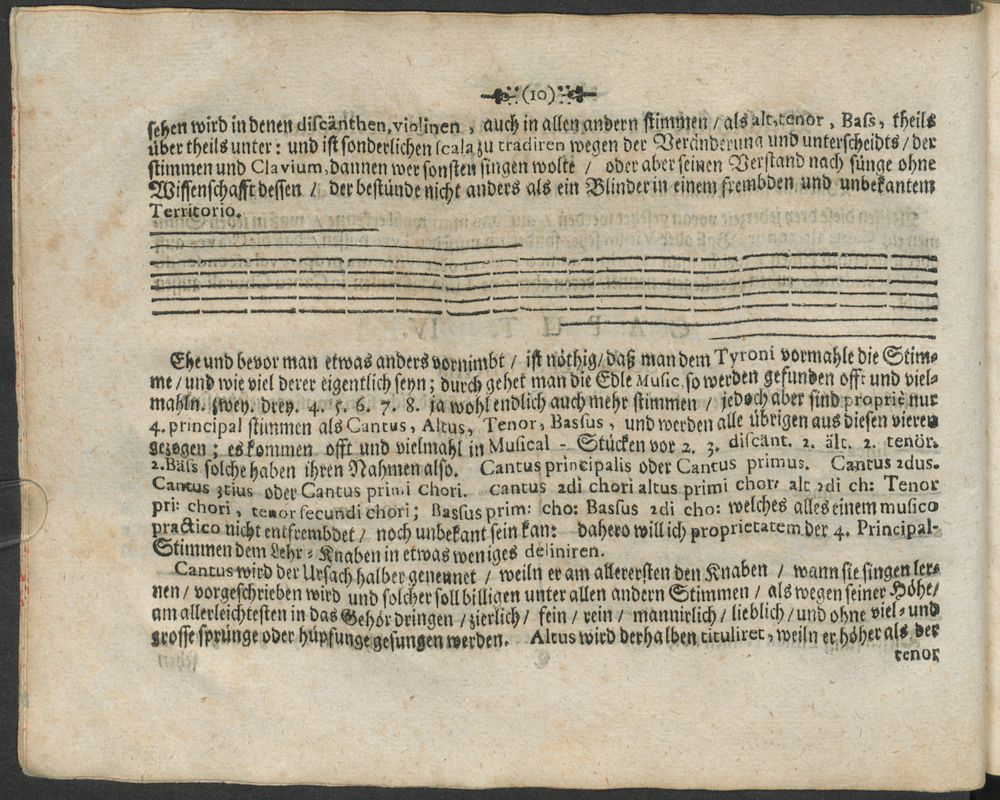 (10)
sehen wird in denen discänthen, violinen, auch in allen andern stimmen / als alt, tenor, Bass, theils
über theils unter: und ist sonderlichen scala zu tradiren wegen der Veränderung und unterscheidts / der
stimmen und Clavium, dannen wer sonsten singen wolte / oder aber seinen Verstand nach sünge ohne
Wissenschafft dessen / der bestünde nicht anders als ein Blinder in einem frembden und unbekantem
Territorio.
Ehe und bevor man etwas anders vornimbt / ist nöthig / daß man dem Tyroni vormahle die Stim-
me / und wie viel derer eigentlich seyn; durch gehet man die Edle Music, so werden gefunden offt und viel-
mahln. zwey. drey. 4. 5. 6. 7. 8. ja wohl endlich auch mehr stimmen / jedoch aber sind propriè nur
4. principal stimmen als Cantus, Altus, Tenor, Bassus, und werden alle übrigen aus diesen vieren
gezogen; es kommen offt und vielmahl in Musical - Stücken vor 2. 3. discänt. 2. ält. 2. tenör.
2. Bäss solche haben ihren Nahmen also. Cantus principalis oder Cantus primus. Cantus 2dus.
Cantus 3tius oder Cantus primi Chori. cantus 2di chori altus primi chori alt 2di ch: Tenor
pri: chori, tenor secundi chori; Bassus prim: cho: Bassus 2di cho: welches alles einem musico
practico nicht entfrembdet / noch unbekant sein kan: dahero will ich proprietatem der 4. Principal-
Stimmen dem Lehr-Knaben in etwas weniges definiren.
Cantus wird der Ursach halber genennet / weiln er am allerersten den Knaben / wann sie singen ler-
nen / vorgeschrieben wird und solcher soll billigen unter allen andern Stimmen / als wegen seiner Höhe /
am allerleichtesten in das Gehör dringen / zierlich / fein / rein / mannirlich / lieblich / und ohne viel- und
grosse sprünge oder hüpfunge gesungen werden. Altus wird derhalben tituliret, weiln er höher als der
tenor